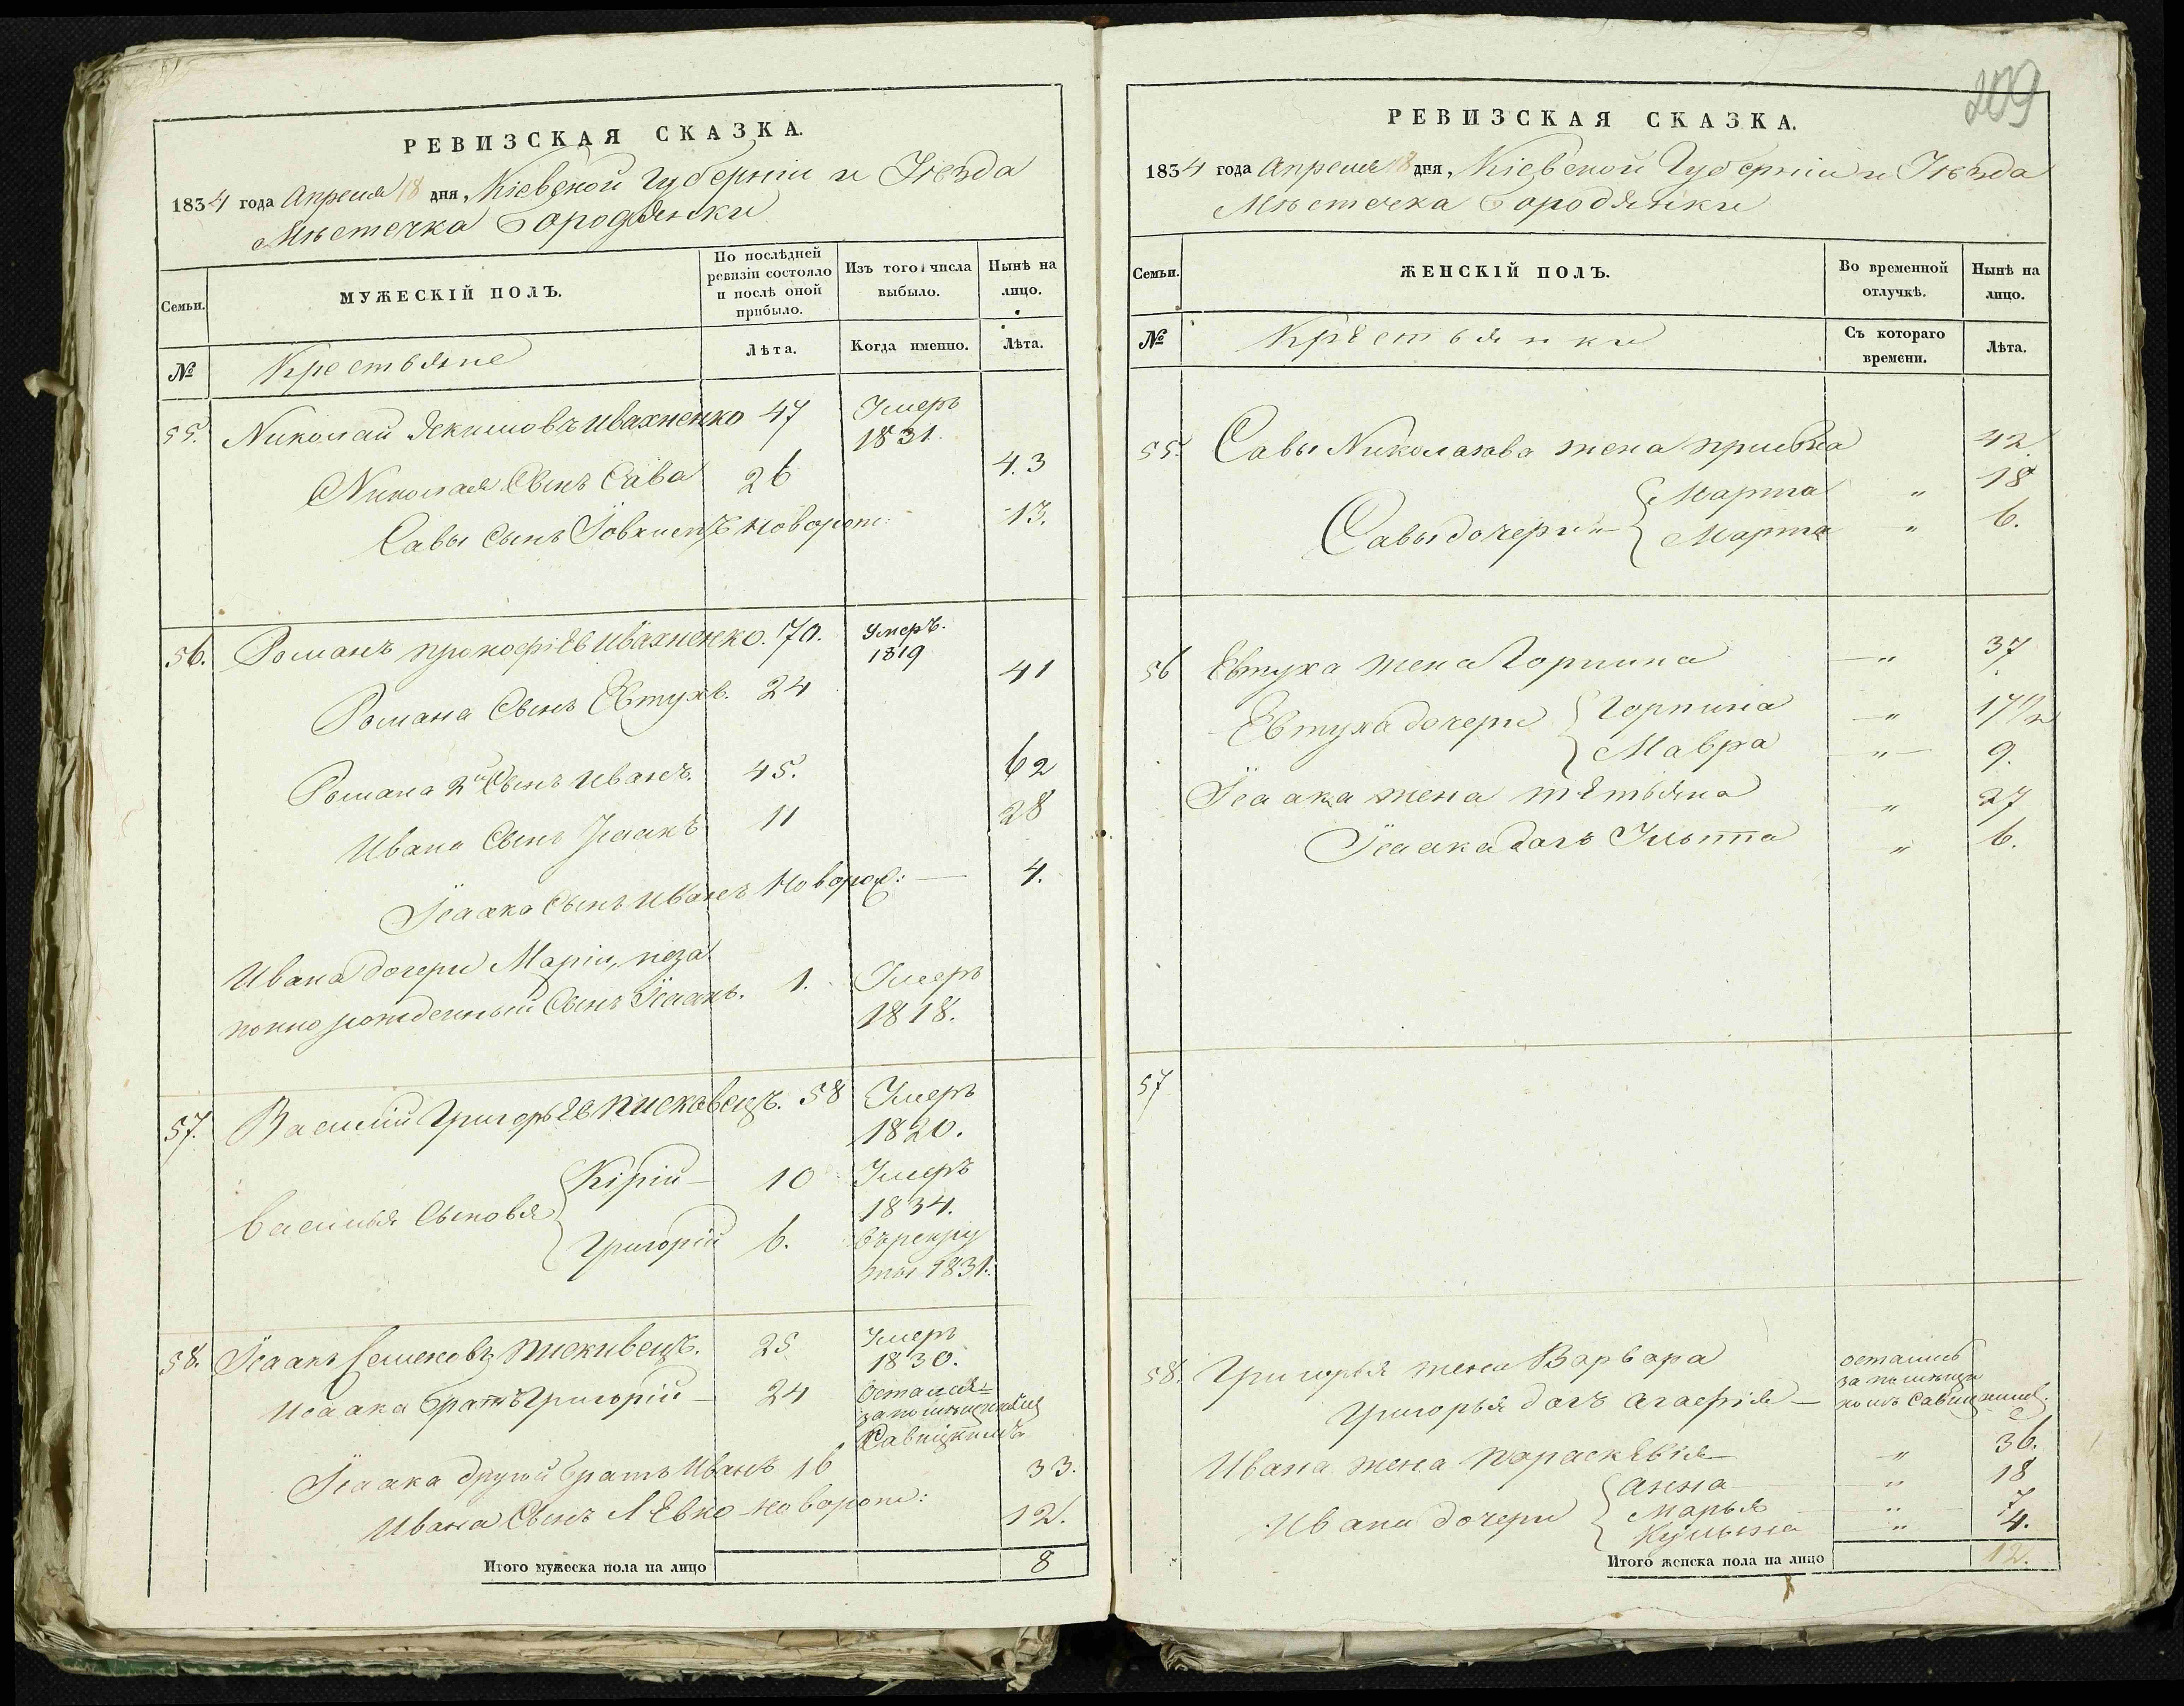 РЕВИЗСКАЯ СКАЗКА.
1834 года Апреля 18 дня, Кіевской Губерніи и Уѣзда
Мѣстечка Бородянки
Семьи.
МУЖЕСКІЙ ПОЛЪ.
По послѣдней ревизіи состояло и послѣ оной прибыло.
Изъ того числа выбыло.
Нынѣ на лицо.
№
Крестьяне
Лѣта.
Когда именно.
Лѣта.
55. Николай Якимовъ Ивахненко 47 Умеръ
1831.
Николая Сынъ Сава 26 43
Савы Сынъ новорож: 13.
56. Романъ прокофіев Ивахненко. 70. Умеръ.
1819
Романа Сынъ Евтухъ. 24 41
Романа 2й Сынъ Иванъ. 45. 62
Ивана Сынъ Ісаакъ 11 28
Ісаака Сынъ Иванъ Новорож: 4.
Ивана дочери Маріи, неза
конно рожденный Сынъ Ісаакъ. 1. Умеръ
1818.
57. Василій Григорьев пискавецъ. 58 Умеръ
1820.
Василья Сыновья
Кірій 10 Умеръ
1834.
Григорій 6. въ рекру
ты 1831.
58. Ісаакъ Семеновъ пискивецъ. 25 Умеръ
1830.
Исаака братъ Григорій 24 Остался
за помѣщикомъ
Савицкимъ
Ісаака другой братъ Иванъ 16 33.
Ивана Сынъ Левко новорож: 12.
Итого мужеска пола на лицо 8
209
РЕВИЗСКАЯ СКАЗКА.
1834 года Апреля 18 дня, Кіевской Губерніи и Уѣзда
Мѣстечка Бородянки
Семьи.
ЖЕНСКІЙ ПОЛЪ.
Во временной отлучкѣ.
Нынѣ на лицо.
№
Крестьянки
Съ котораго времени.
Лѣта.
55. Савы Николаева жена 42
Савы дочери
Марта " 18
Марта " 6.
56 Евтуха жена Горпина " 37
Евтуха дочери
Горпина " 17 1/2
Мавра " 9.
Ісаака жена тетьяна " 27
Ісаака дочь Ульяна " 6.
57
58. Григорья жена Варвара остались
Григорья дочь агафія за помѣщи
комъ Савицкимъ.
Ивана жена параскевія " 36.
Ивана дочери
анна " 18
Марья " 7
Кулына " 4.
Итого женска пола на лицо 12.